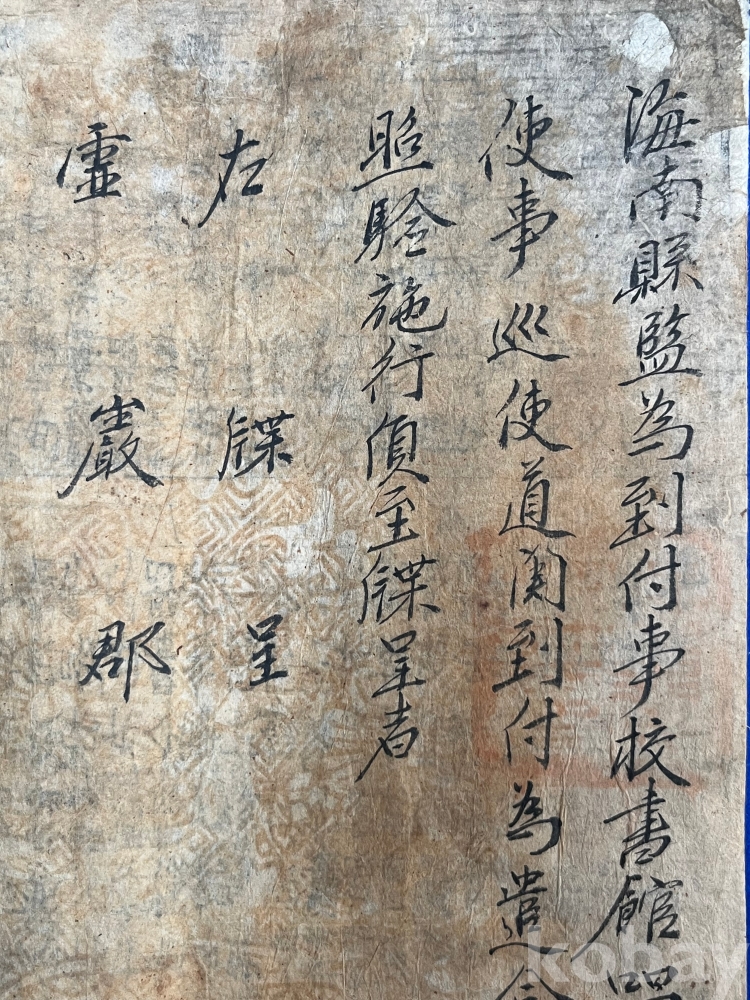 海南縣監為到付事校書館
使事 巡使道関到付為遣合
照驗施行湏至牒呈者
左 牒 呈
靈 巖 郡
kobay